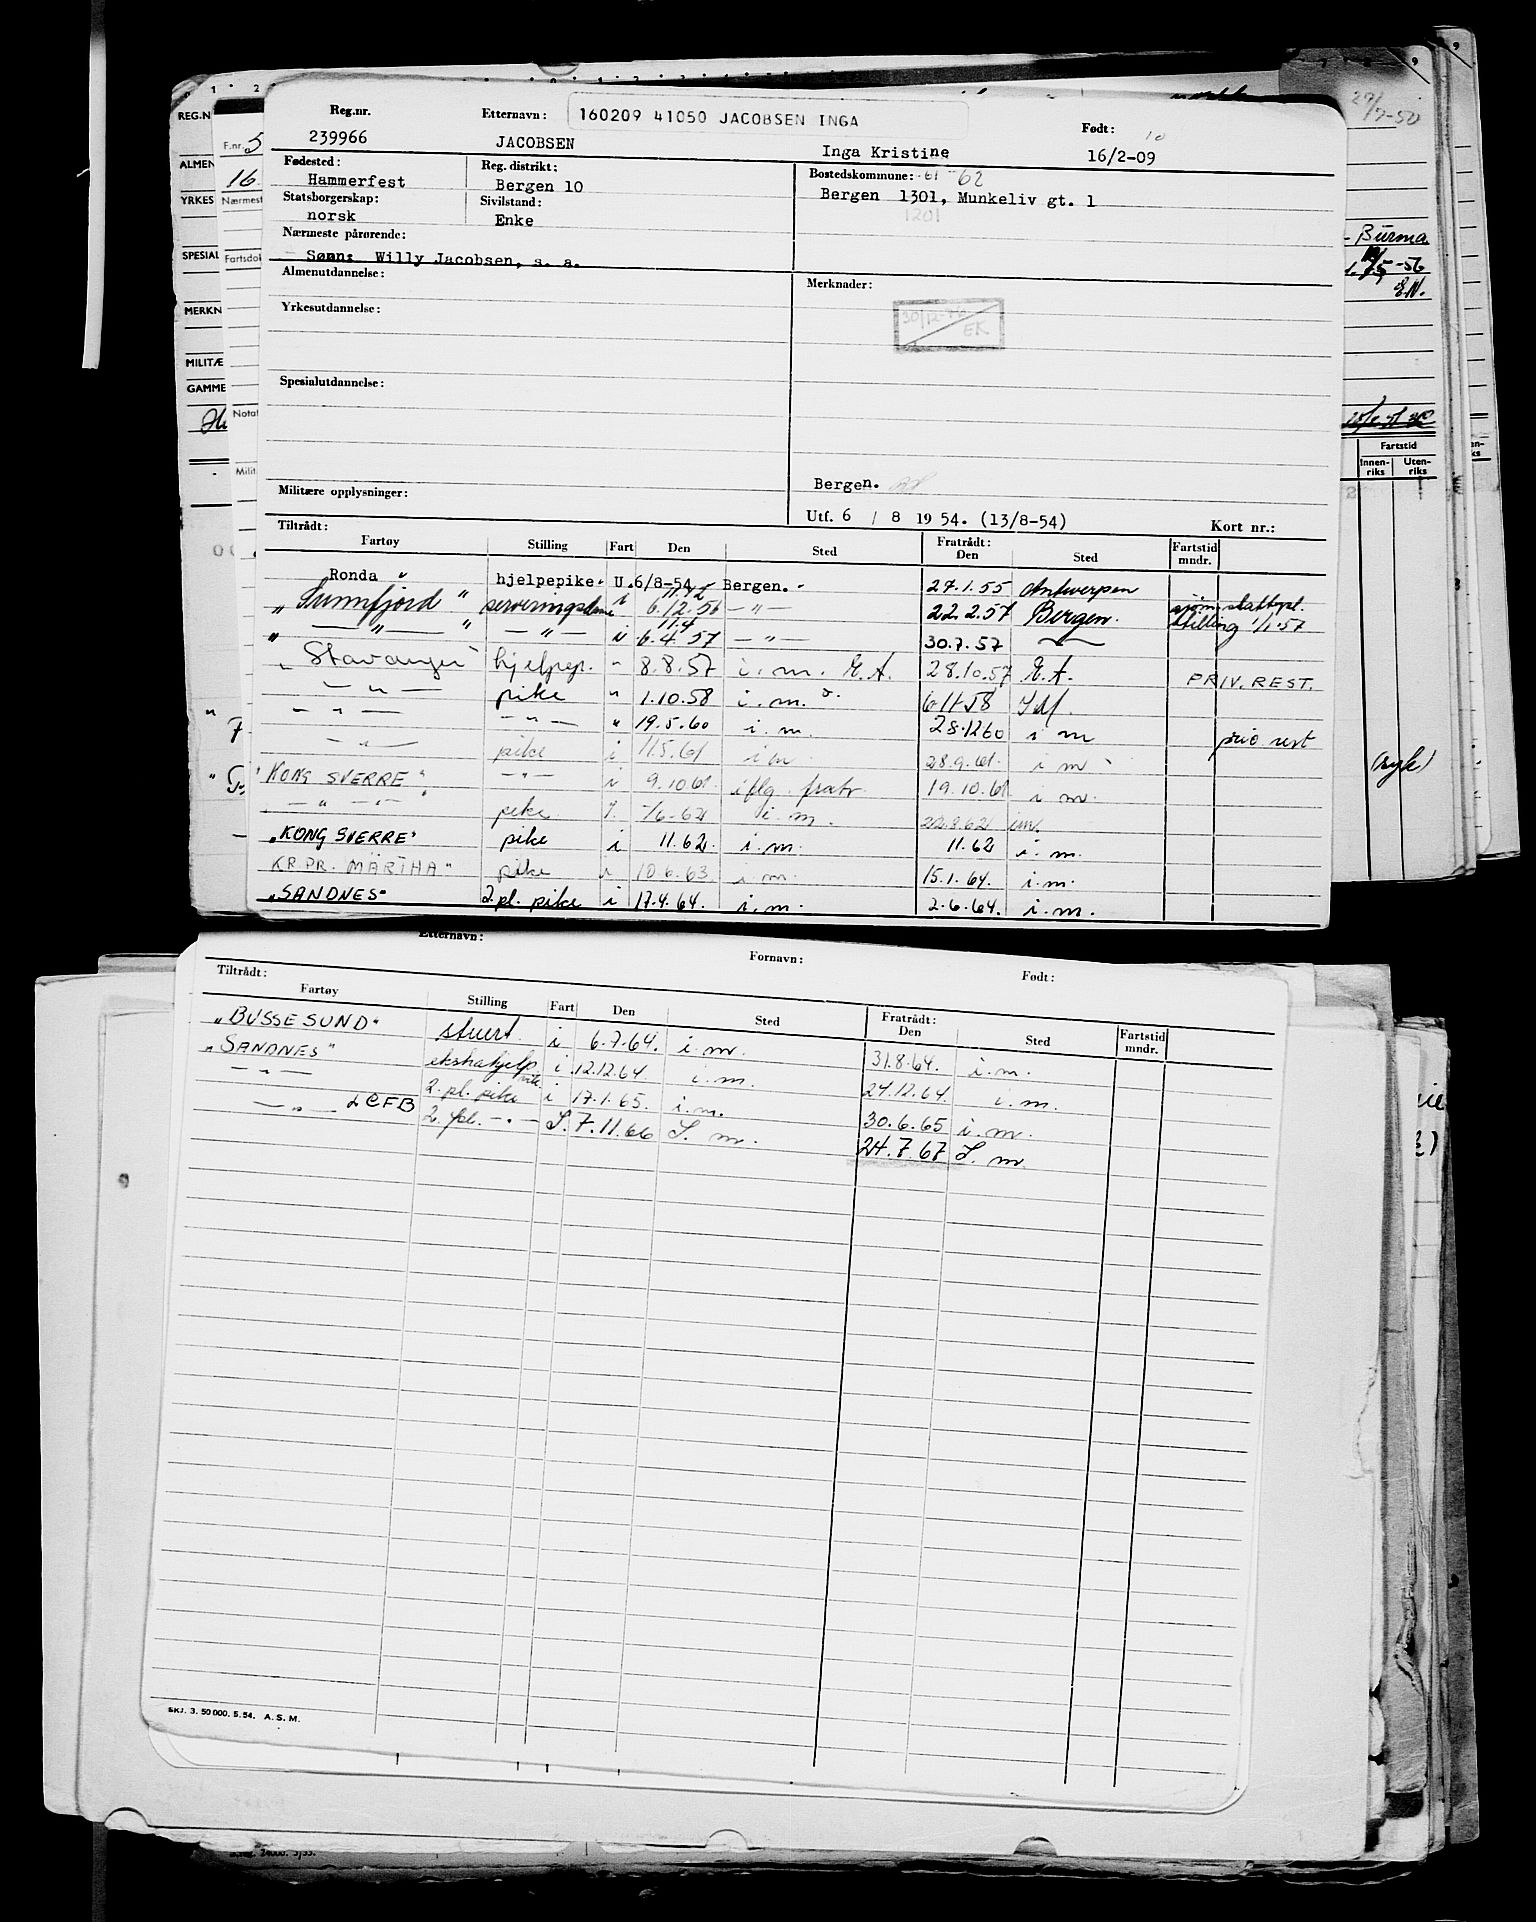 160209 41050 JACOBSEN INGA
Reg.nr. Etternavn: Født: 10
239966 JACOBSEN Inga Kristine 16/2-09
Fødested: Reg. distrikt: Bostedskommune: 61 - 62
Hammerfest Bergen 10 Bergen 1301, Munkeliv gt. 1
Statsborgerskap: Sivilstand: 1201
norsk Enke
Nærmeste pårørende:
Sønn: Willy Jacobsen, s. a.
Almenutdannelse: Merknader:
Yrkesutdannelse: EK
Spesialutdannelse:
Bergen.
Militære opplysninger:
Utf. 6 / 8 19 54. (13/8-54) Kort nr.:
Tiltrådt: Fratrådt:
Fartøy Stilling Fart Den Sted Den Sted Fartstid mndr.
Ronda " hjelpepike U. 6/8-54 Bergen. 27.1.55 Antwerpen
" Sunnfjord " i 11.42 6.12.56 — " — 22.2.57 Bergen. stilling 1/1 57
" — " — " — " — i 11.4 6.4.57 — " — 30.7.57
" Stavanger hjelpep. " 8.8.57 i. m. E.A. 28.10.57 E.A. PRIV. REST.
— " — pike " 1.10.58 i. m. 6 11 58 I M.
— " — — " — " 19.5.60 i. m. 28.12 60 i m priv rest
— " — pike i 11.5.61 i m 28.9.61. i m
" KONG SVERRE " — " — i 9.10.61. i flg. fratr 19.10.61 i m.
— " — pike i. -/6-62 i. m. 22.8.62 im.
"KONG SVERRE" pike i 11.62. i. m. 11.62 i. m.
KR.PR. MÄRTHA" pike i 10.6.63. i. m. 15.1.64. i. m.
"SANDNES" 2.pl. pike i 17.4.64. i. m. 2.6.64. i. m.
Etternavn: Fornavn: Født:
Tiltrådt: Fratrådt:
Fartøy Stilling Fart Den Sted Den Sted Fartstid mndr.
"BUSSESUND" stuert i 6.7.64. i. m. 31.8.64. i. m.
"SANDNES" ekstrahjelp i 12.12.64. i. m. 24.12.64. i. m.
— " — 2. pl. pike i 17.1.65. i. m. 30.6.65 i. m.
— " — LCFB 2. pl. — " — I. 7.11.66 I. m. 24.7.67 I. m
SKJ. 3. 50 000. 5. 54. A. S. M.
REG.N
F.nr. 5
ALMEN
16.
YRKES
Nærmest
SPESIAL
Fartsdok
MERKN
MILITÆ
GAMME
Notat
Milit
27/7-50
- Burma
Fartstid
Innen-riks Uten-riks
(ryk)